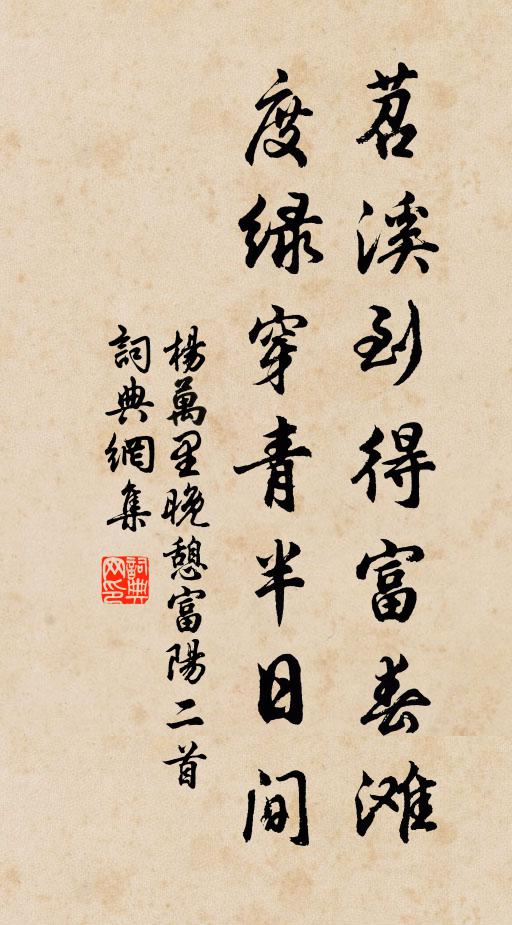 苕溪到得富春滩
度绿穿青半日间
楊萬里晚憩富陽二首
詞典網集
詞典网印